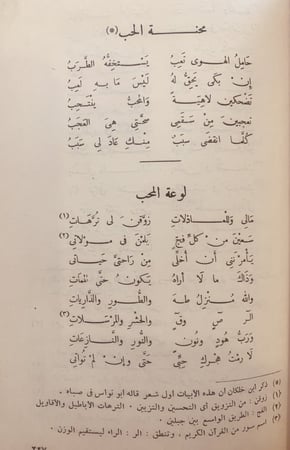 محنة الحب (*)
حَامِلُ الهوى تَعِبُ يَسْتَخِفُّهُ الطَّرَبُ
إنْ بَكَى يَحِقُّ لَهُ لَيْسَ مَا بِهِ لَعِبُ
تَضْحَكِينَ لاهِيَةً وَالمُحِبُّ يَنْتَحِبُ
تَعْجَبِينَ مِنْ سَقَمِي صِحَّتِي هِيَ العَجَبُ
كُلَّمَا انْقَضَى سَبَبٌ مِنْكِ عَادَ لِي سَبَبُ
لوعة المحب
مَالِي وَلِلْعَاذِلاتِ زَوَّقْنَ لِي تُرَّهَاتِ (١)
سَعَيْنَ مِنْ كلِّ فَجٍّ يَلُمْنَ فِي مَوْلاتِي (٢)
يَأْمُرْنَنِي أَنْ أُخَلِّي مِنْ رَاحَتَيَّ حَيَاتِي
وَذَاكَ مَا لَا أَرَاهُ يَكُونُ حَتَّى المَمَاتِ
والله مُنْزِلُ طٰهَ والطُّورِ والذَّارِيَاتِ
الٓر صٓ وقٓ والحَشْرِ والمُرْسَلَاتِ (٣)
وَرَبِّ هُودٍ ونُونٍ والنُّورِ والنَّازِعَاتِ
لَا رُمْتُ هَجْرَكِ حِبِّي حَتَّى وإنْ لَمْ تُوَاتِي
(*) ذكر ابن خلكان أن هذه الأبيات أول شعر قاله أبو نواس في صباه .
(١) زوقن : من التزويق أي التحسين والتزيين . الترهات الأباطيل والأقاويل
(٢) الفج : الطريق الواسع بين جبلين .
(٣) اسم سور من القرآن الكريم ، وتنطق : الر : الراء ليستقيم الوزن .